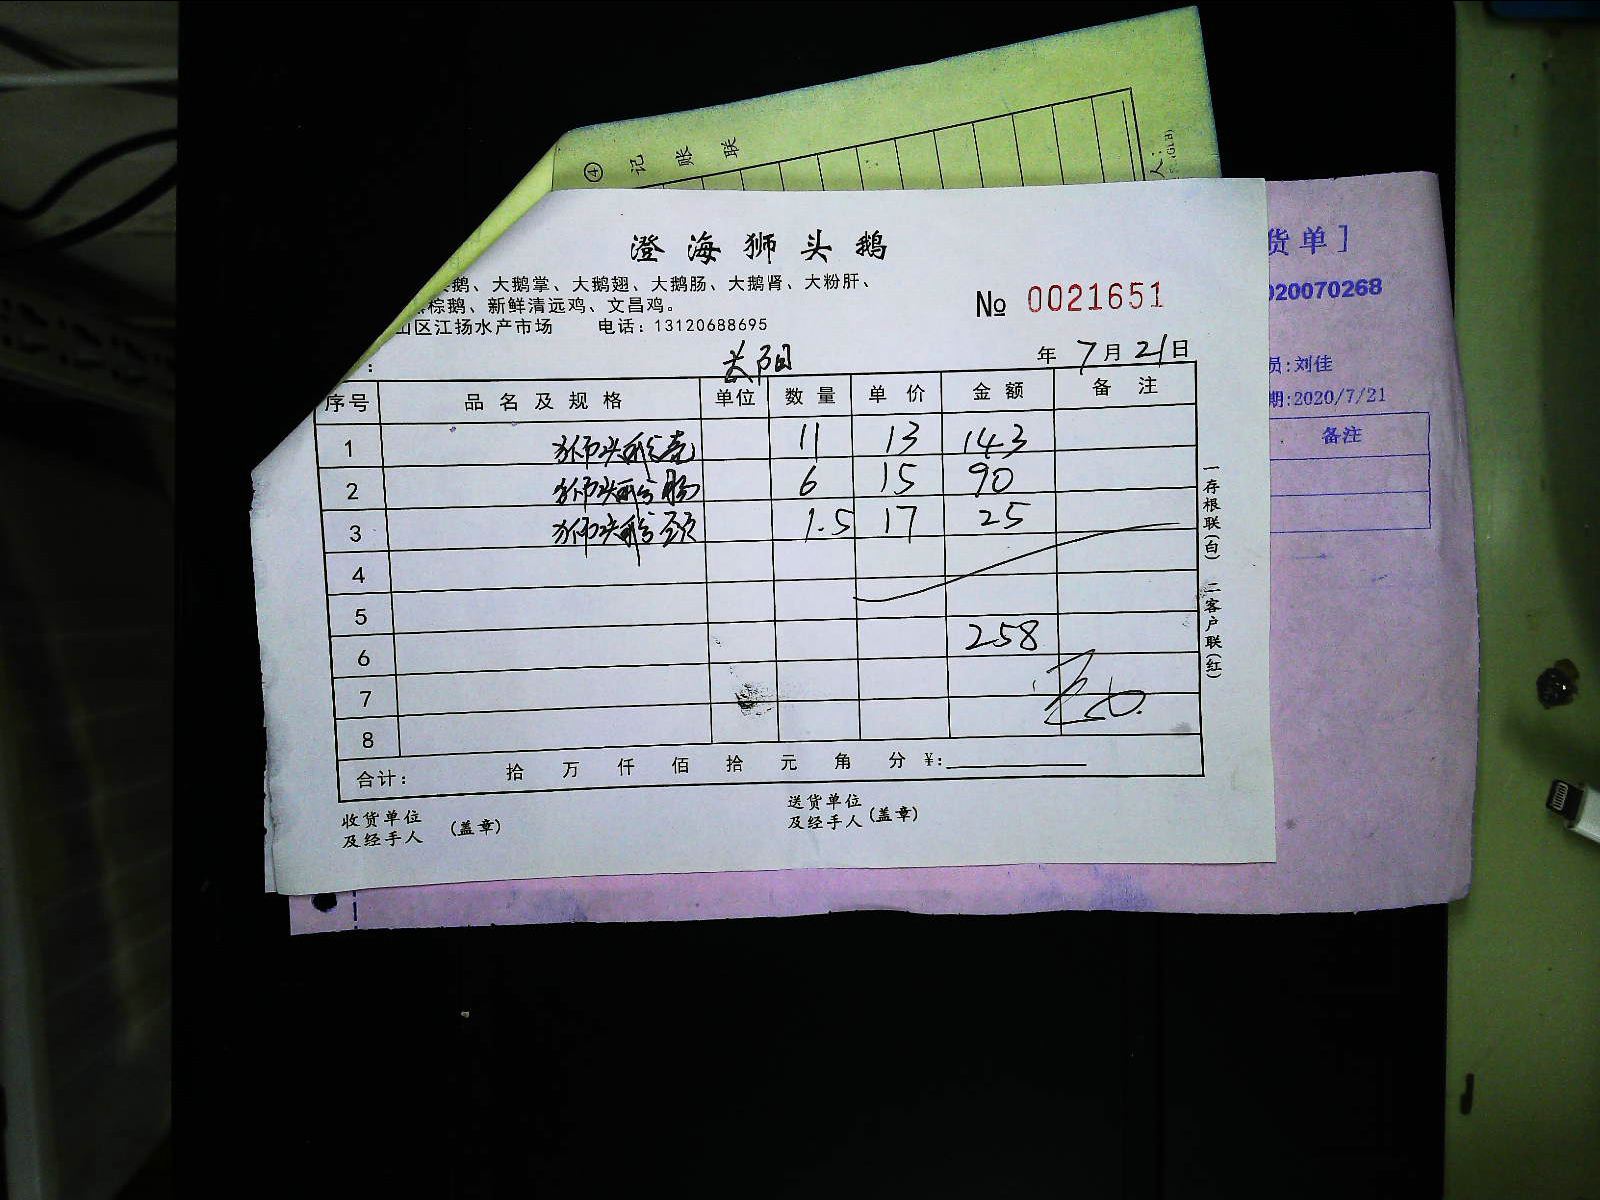 ④ 记账联
货单]
020070268
员:刘佳
期:2020/7/21
备注
澄海狮头鹅
鹅、大鹅掌、大鹅翅、大鹅肠、大鹅肾、大粉肝、
棕鹅、新鲜清远鸡、文昌鸡。
山区江扬水产市场 电话：13120688695
№ 0021651
年 7月21日
序号 品名及规格 单位 数量 单价 金额 备注
1 狮头鹅壳 11 13 143
2 狮头鹅肠 6 15 90
3 狮头鹅颈 1.5 17 25
4
5
6 258
7
8
合计： 拾 万 仟 佰 拾 元 角 分 ¥:
收货单位及经手人 (盖章)
送货单位及经手人 (盖章)
一存根联(白) 二客户联(红)